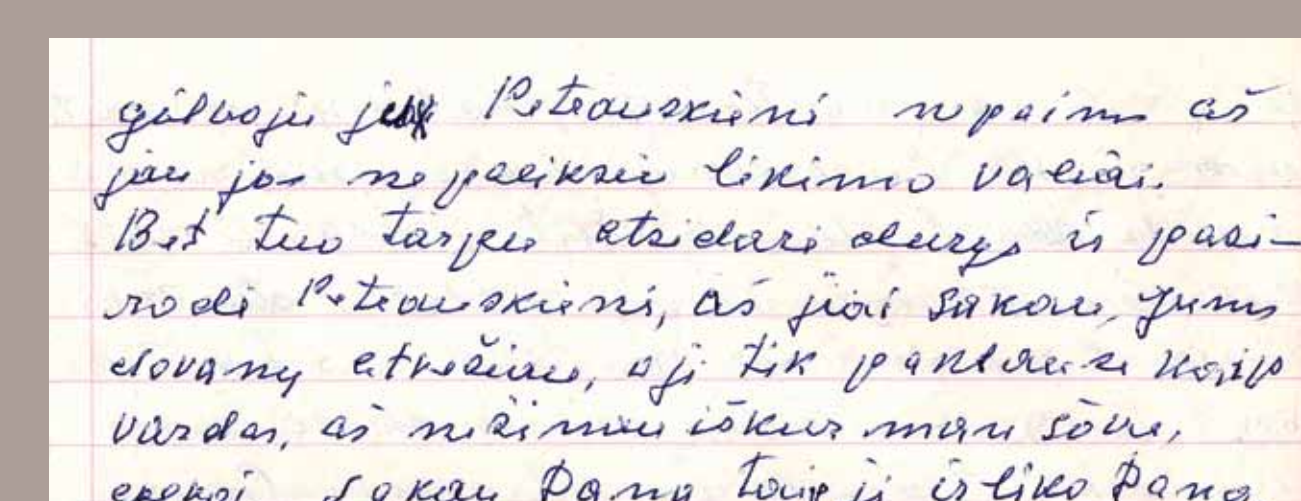 galvoju jei Petrauskienė nepaims aš
jau jos nepaliksiu likimo valiai.
Bet tuo tarpu atsidarė durys ir pasi-
rodė Petrauskienė, aš jiai sakau, Jums
dovaną atvežiau, o ji tik paklausė kaip
vardas, aš nežinau iškur man šovė,
sakau Dana taip ji ir liko Dana